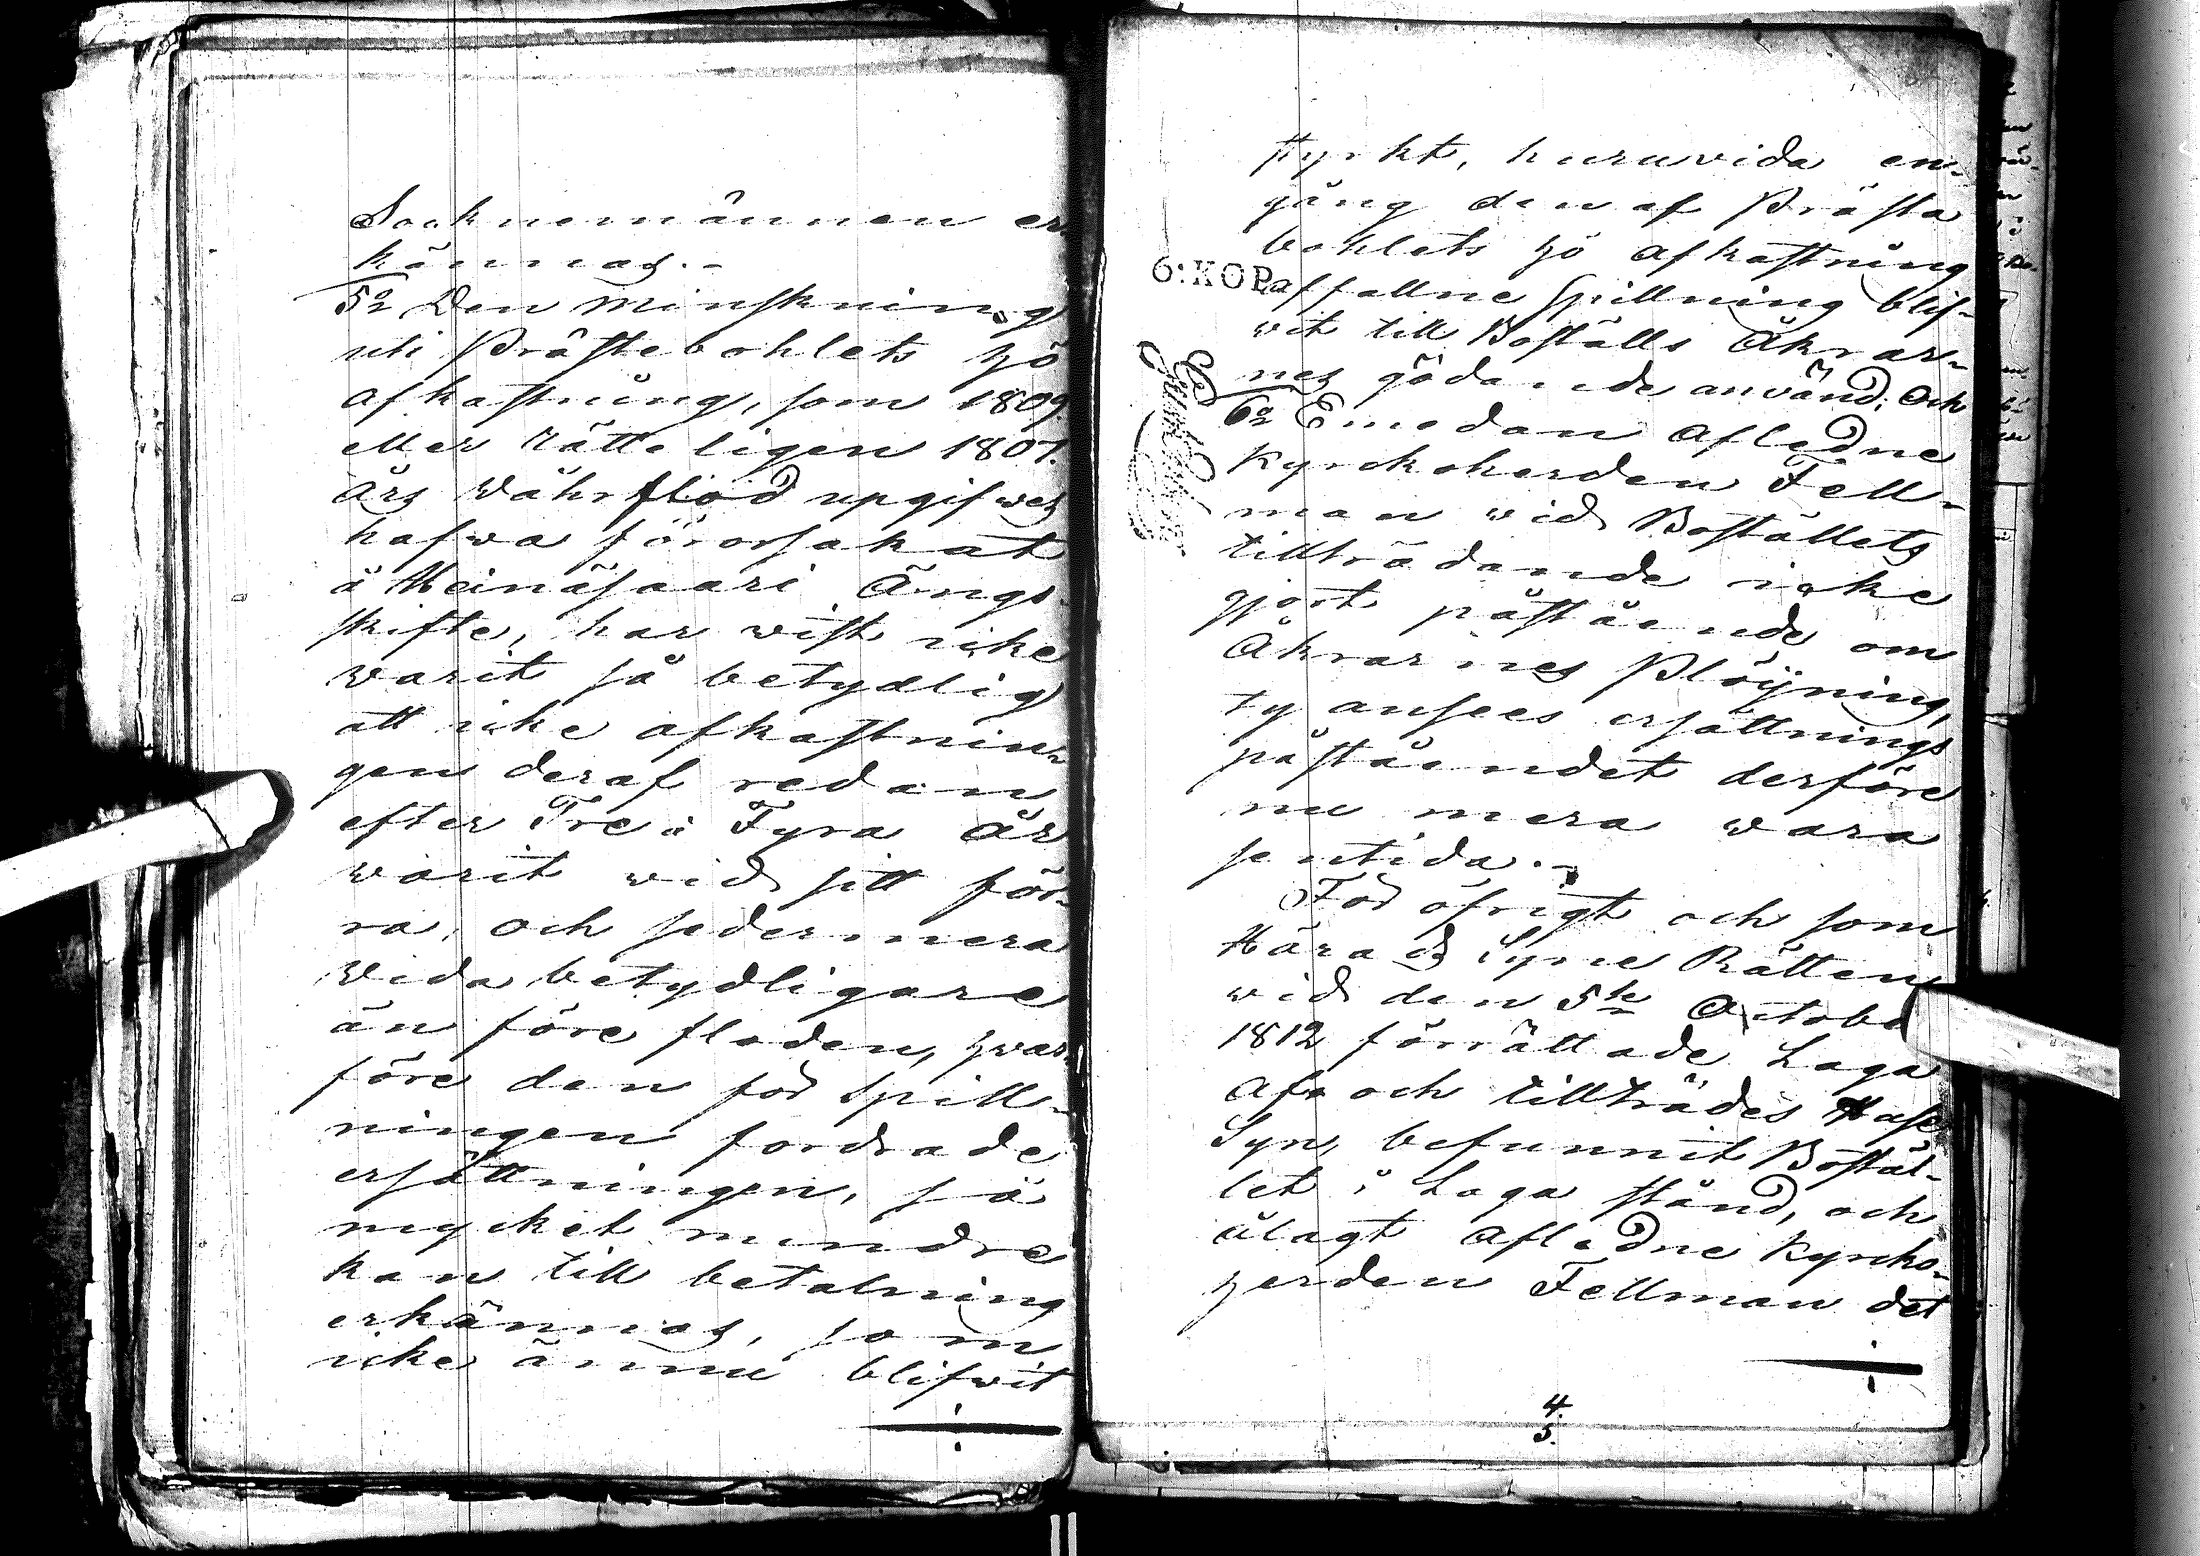 Socknemännen er-
kännas.-
5o Den minskning
uti Prästebohlets hö
afkastning, som 1809.
eller rätteligen 1807.
års Währflod upgifwes
hafwa förorsakat
å Heinäsaari Ängs-
skifte, har wist icke
warit så betydlig
att icke afkastnin-
gen deraf redan
efter Tre à Fyra år
warit wid sitt för-
ra, och sedermera
wida betydligare
än före floden, hwar-
före den för spill-
ningen fordrade
ersättningen, så
mycket mindre
kan till betalning
erkännas, som
icke ännu blifwit
styrkt, huruvida en-
gång den af Prästa
bohlets hö afkastning
affallne spillning blif-
wit till Boställs Åkrar-
nes gödande använd; Och
6o Emedan Afledne
Kyrckoherden Fell-
man wid Boställets
tillträdande icke
gjort påstående om
Åkrarnes Plöijning,
ty ansees ersättnings
påståendet derföre
nu mera wara
sentida.-
För öfrigt och som
Härads Syne Rätten
wid den 5te Octobr
1812 förrättade Laga
Af- och tillträdes Huse
Syn, befunnit Bostäl-
let i Laga stånd, och
ålagt Afledne Kyrcko-
herden Fellman det
6:KOP
4.
5.